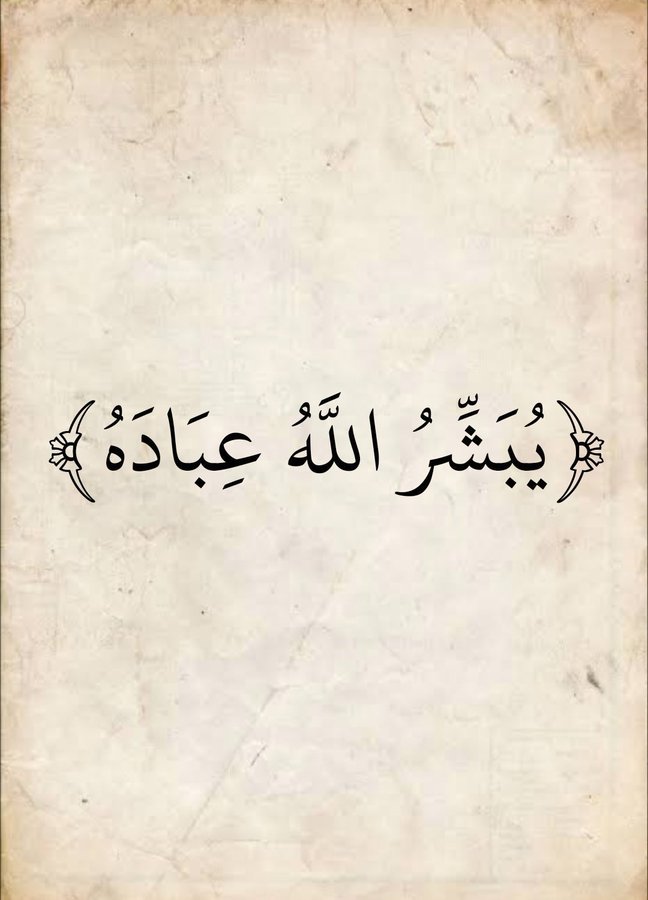 ﴿يُبَشِّرُ اللَّهُ عِبَادَهُ﴾